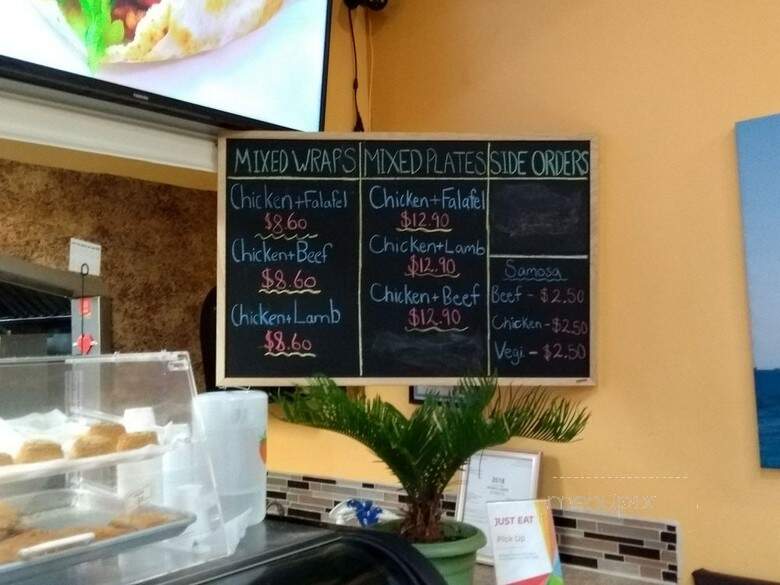 MIXED WRAPS
Chicken+Falafel
$8.60
Chicken+Beef
$8.60
Chicken+Lamb
$8.60
MIXED PLATES
Chicken+Falafel
$12.90
Chicken+Lamb
$12.90
Chicken+Beef
$12.90
SIDE ORDERS
Samosa
Beef - $2.50
Chicken - $2.50
Vegi. - $2.50
2018
JUST EAT
Pick Up